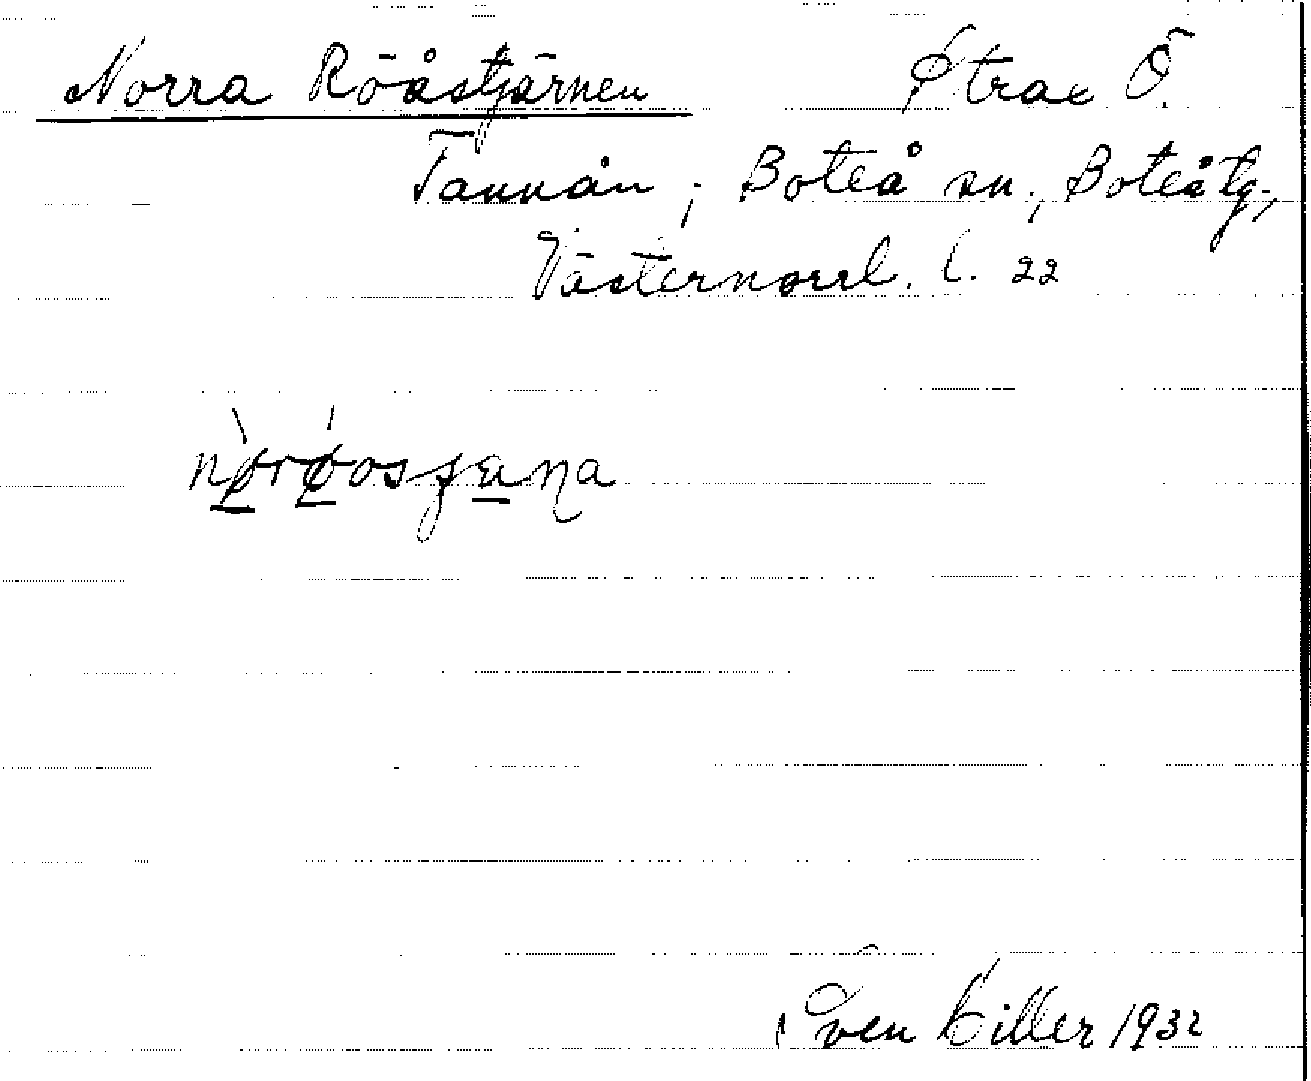 Norra Rööåstjärnen Strax Ö.
Tannån, Boteå sn., Boteå tg.,
Västernorrl. l. 22
nø̀røossʃana
Sven Killer 1932